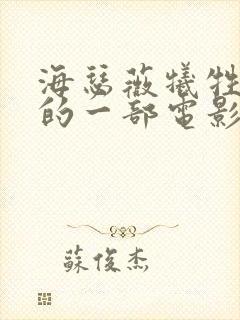 海瑟薇犧牲
的一部電影
蘇俊杰